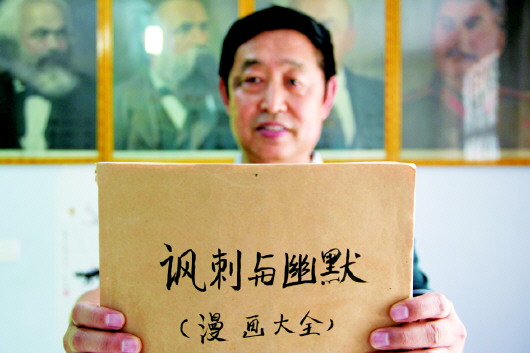 讽刺与幽默
(漫画大全)